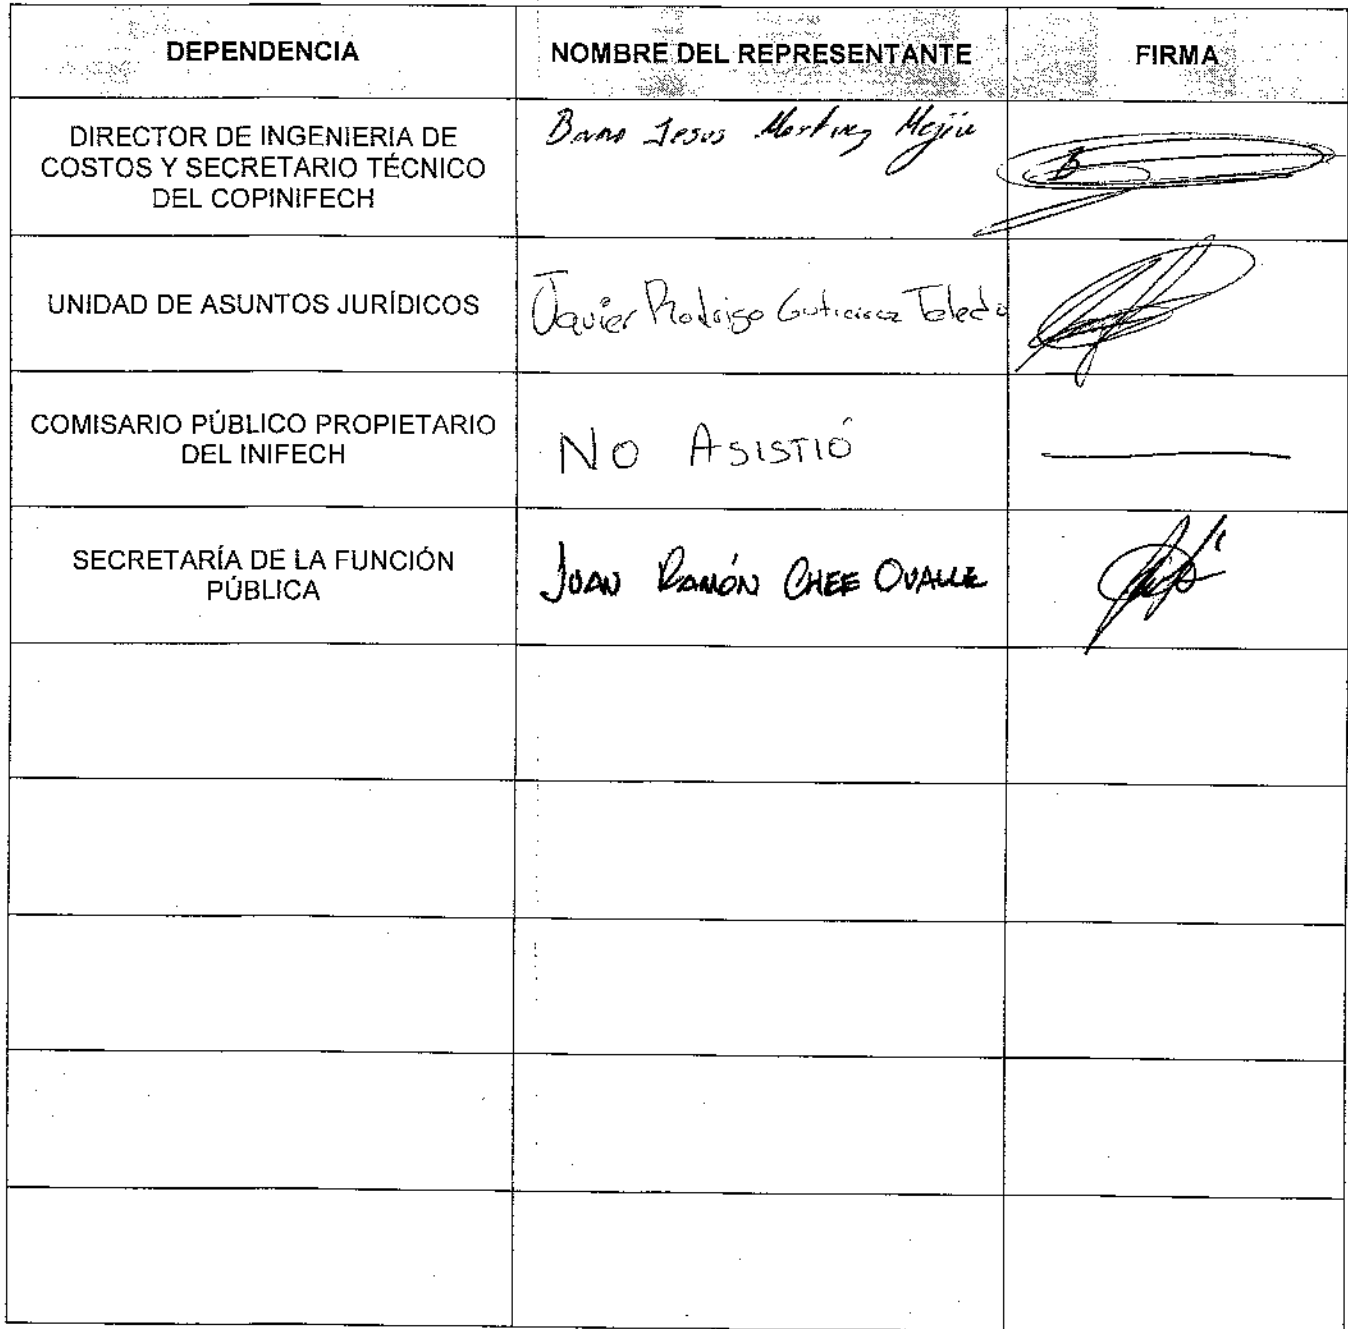 DEPENDENCIA NOMBRE DEL REPRESENTANTE FIRMA
DIRECTOR DE INGENIERIA DE
COSTOS Y SECRETARIO TÉCNICO
DEL COPINIFECH
Jesus Martinez Mejia
UNIDAD DE ASUNTOS JURÍDICOS
Javier Rodrigo Gutierrez Toledo
COMISARIO PÚBLICO PROPIETARIO
DEL INIFECH
NO ASISTIÓ
SECRETARÍA DE LA FUNCIÓN
PÚBLICA
JUAN RAMÓN CHEE OVALLE